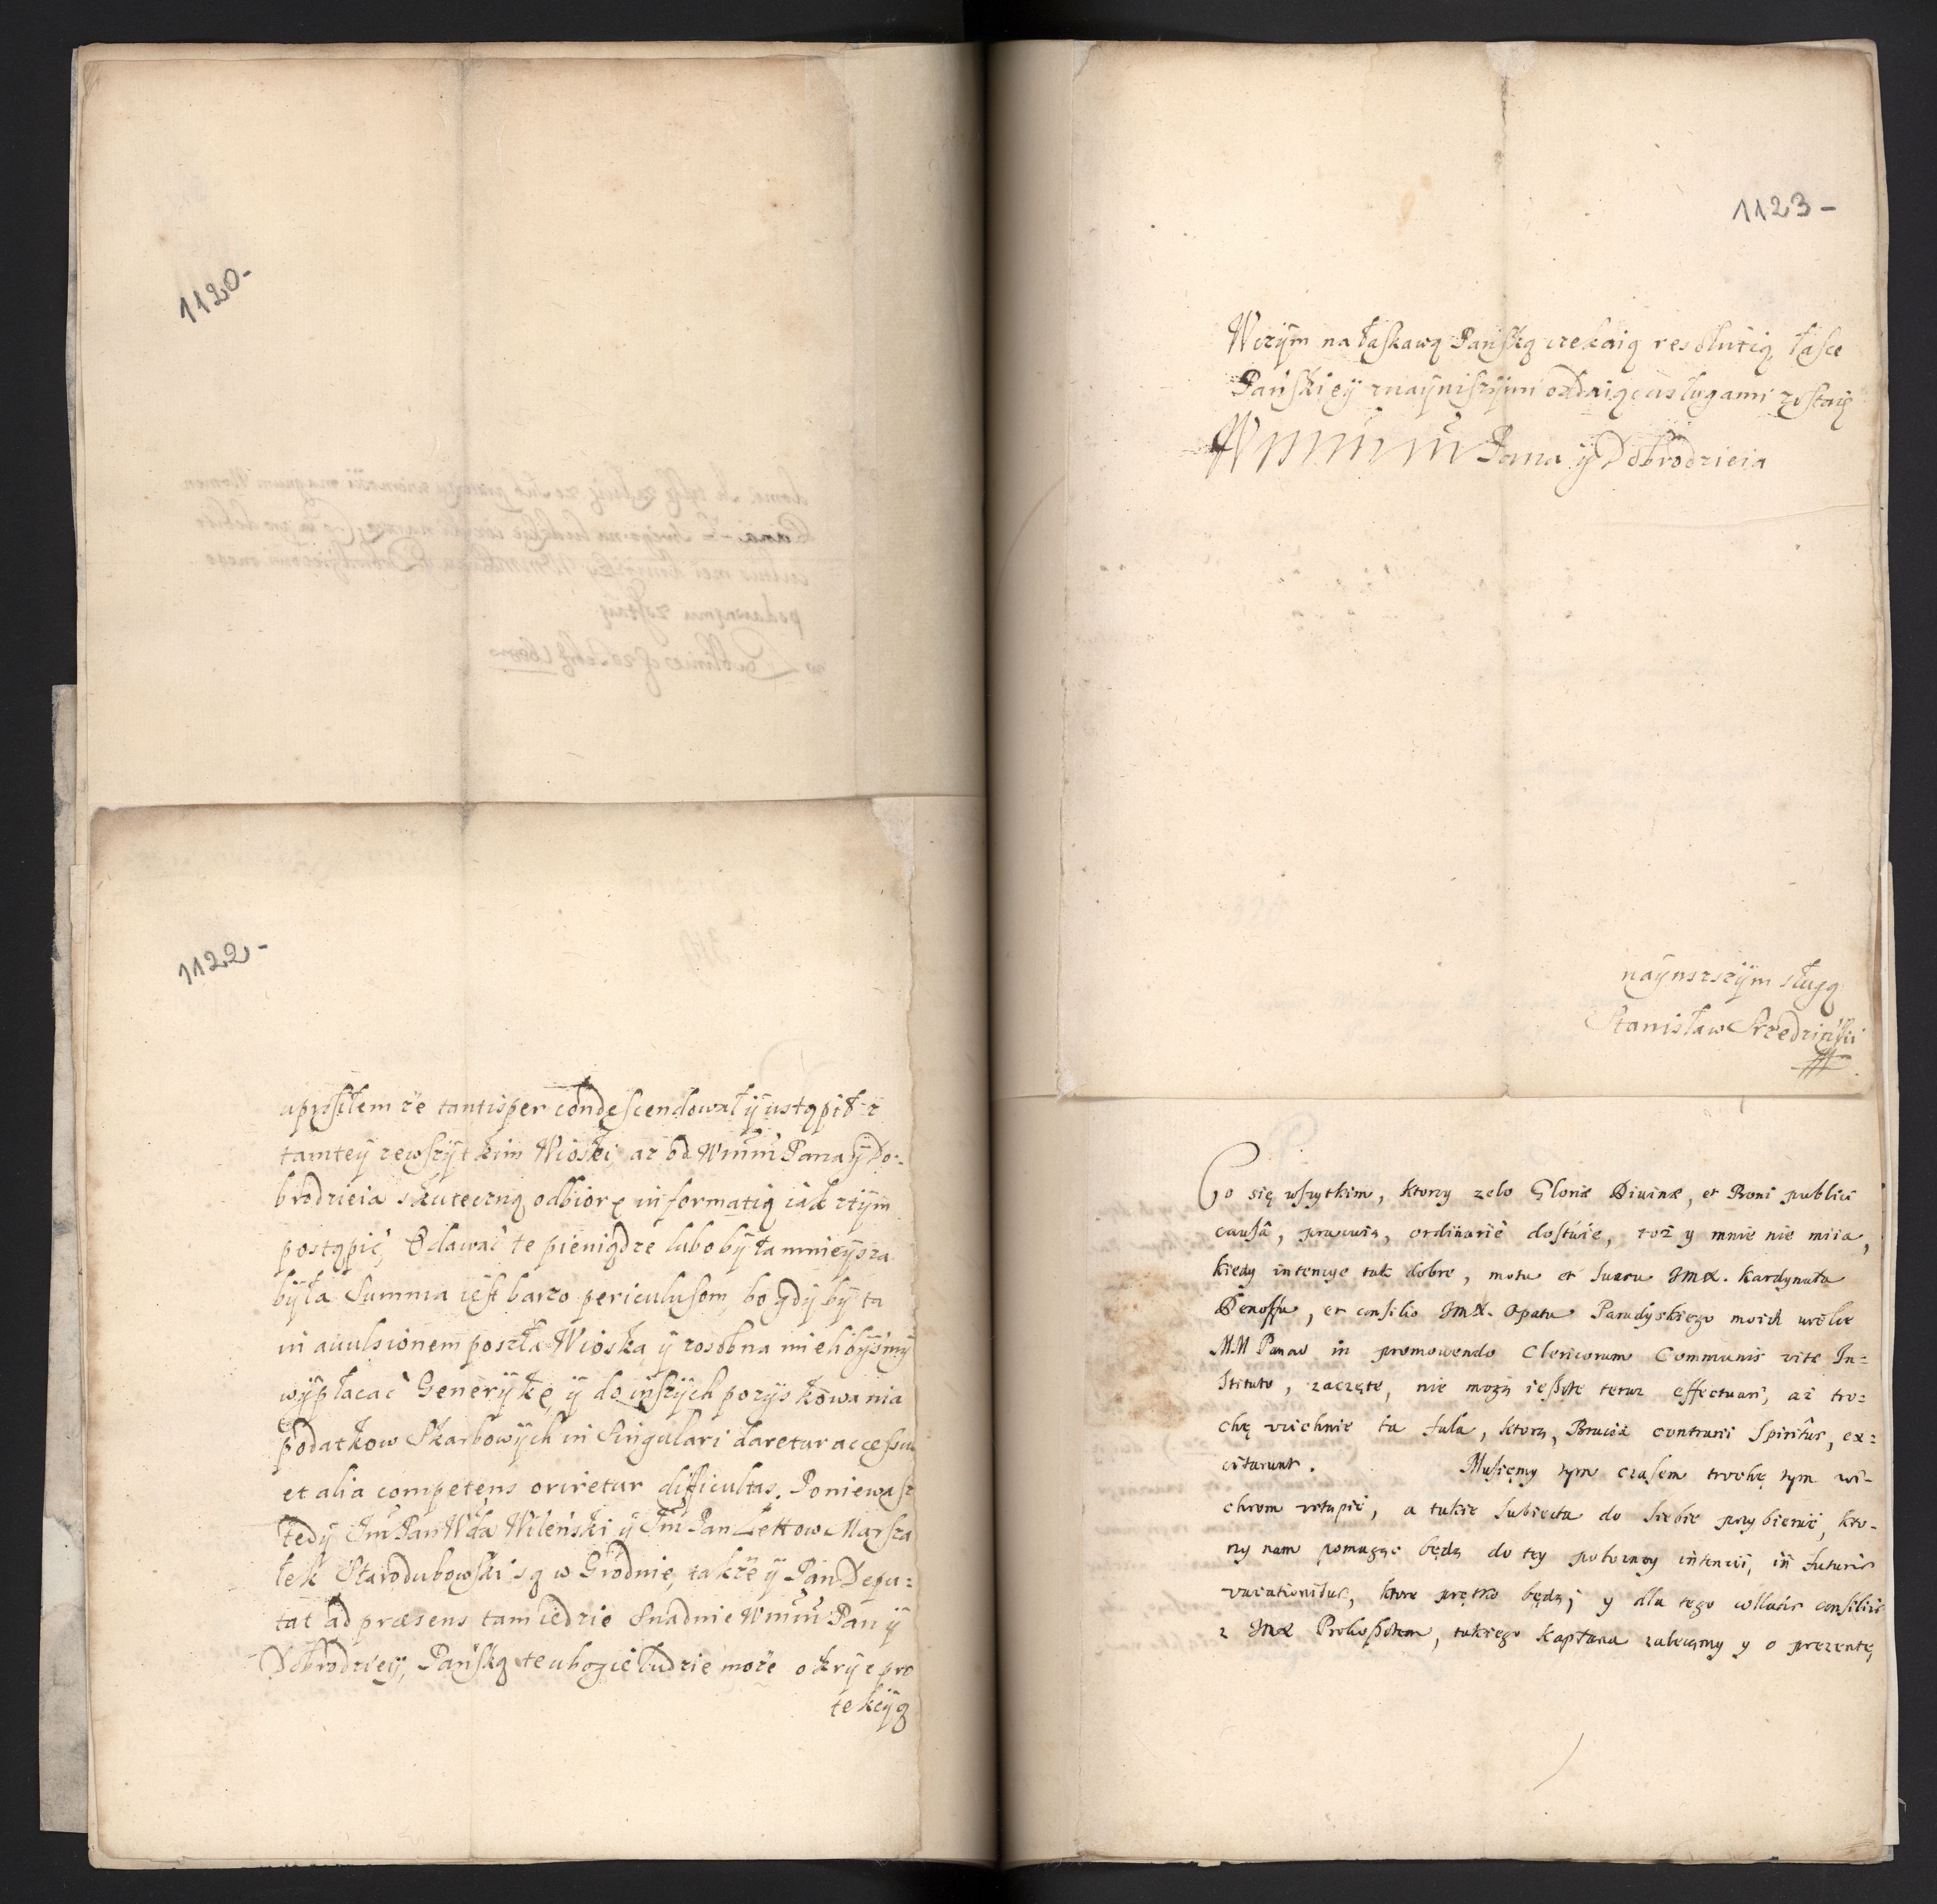 1120-
1122-
uprosiłem że tantisper condescendował ÿ ustąpił z
tamteÿ zewszÿtkim Wioski, aż od Wmm Pana ÿ Do-
brodzieia skuteczną odbiorę informatią iak ztÿm
postąpić, Odawać te pieniądze lubo bÿ ta mnieÿsza
bÿła Summa iest barzo periculusom, bo gdÿ bÿ ta
in auulsionem poszła Wioska ÿ zosobna mielibÿsmÿ
wÿpłacać Generÿkę, ÿ do inszÿch pozÿskowania
podatkow Skarbowÿch in Singulari daretur accessus
et alia competens oriretur difficultas. Poniewasz
tedÿ Jm Pan Wda Wileński ÿ Jm Pan Lettow Marsza
łek Starodubowski są w Grodnie, także ÿ Pan Depu=
tat ad præsens tam iedzie Snadnie Wmm Pan ÿ
Dobrodzieÿ, Pańską te ubogie ludzie może okrÿć pro
tekcÿą
1123-
Wczÿm na łaskawą Pańską czekaią resolutią, łasce
Pańskieÿ z naÿniszÿmi oddaiąc usługami zostaię
Wmm Pana ÿ Dobrodzieia
naÿnszszÿm sługą
Stanisław Srzedziński
Co się wszytkim, ktorzy zelo Gloriæ Diuinæ, et Boni publici
causâ, pracuią, ordinariè dostáie, toż y mnie nie miia,
kiedy intencye tak dobre, motu et suasu JmX. Kardynała
Denoffa, et consilio JmX. Opata Paradyskiego moich wielce
MM Panow in promowendo Clericorum Communis vitæ In=
stituto, zaczęte, nie mogą ieszcze teraz effectuari, aż tro=
chę vcichnie ta fala, ktorą, Bracia contrarii Spiritûs, ex=
citarunt. Musięmy tym czasem trochę tym wi-
chrom vstąpić, a takie subiecta do siebie przybierać, kto-
rzy nam pomagać będą do tey pobożney intencii, in futuris
vacationibus, ktore prętko będą; y dla tego collatis consiliis
z JmX Proboszczem, takiego Kapłana zalecamy y o prezentę,